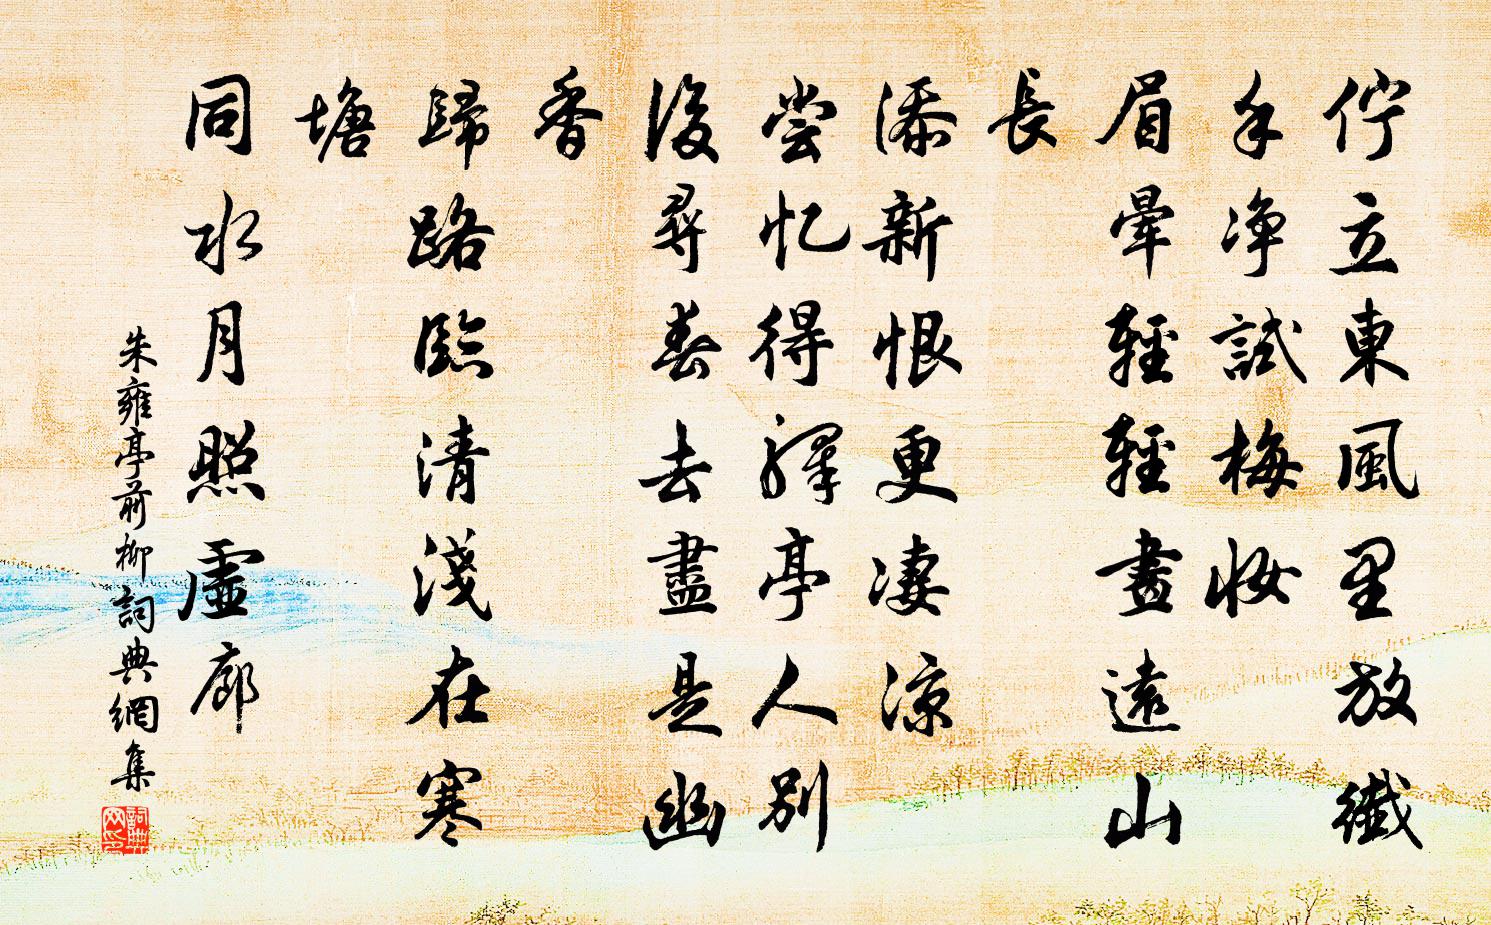 佇立東風里放纖
手净試梅妝
眉暈輕輕畫遠山
長
添新恨更凄凉
尝忆得驛亭人別
後尋春去盡是幽
香
歸路臨清淺在寒
塘
同水月照虛廊
朱雍亭前柳詞典網集
詞典网印